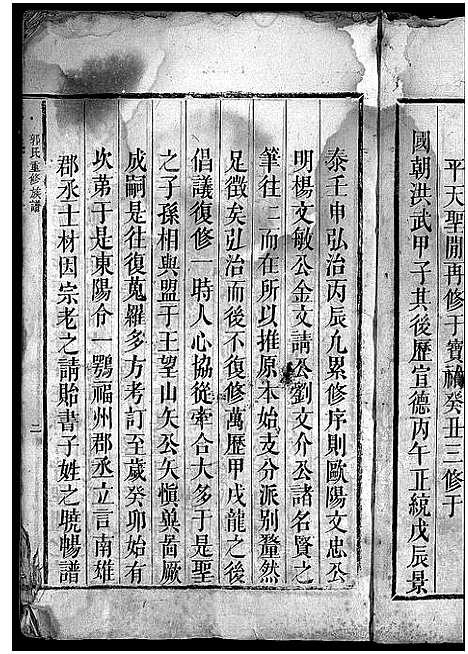 平天聖開再修于寶祐癸丑三修于
國朝洪武甲子其後歷宣德丙午正統戊辰景
泰壬申弘治丙辰九累修序則歐陽文忠公
明楊文敏公金文請公劉文介公諸名賢之
筆往二而在所以推原本始支分派別釐然
足徵矣弘治而後不復修萬歷甲戌龍之後
倡議復修一時人心協從牽合大多于是聖
之子孫相與盟于王望山矢公矢愼與啚厥
成嗣是往復蒐羅多方考訂至歲癸卯始有
次苐于是東陽令一鶚福州郡丞立言南雄
郡丞士材因宗老之請貽書子姓之曉暢譜
郭氏重修族譜
二